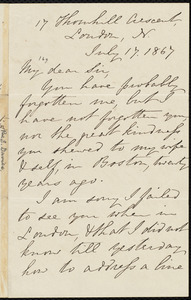 17 Thornhill Crescent,
London, N
July 17. 1867
My dear Sir,
You have probably
forgotten me, but I
have not forgotten you,
nor the great kindness
you shewed to my wife
& self, in Boston, twenty
years ago.
I am sorry I failed
to see you when in
London, & that I did not
know till yesterday
how to address a line